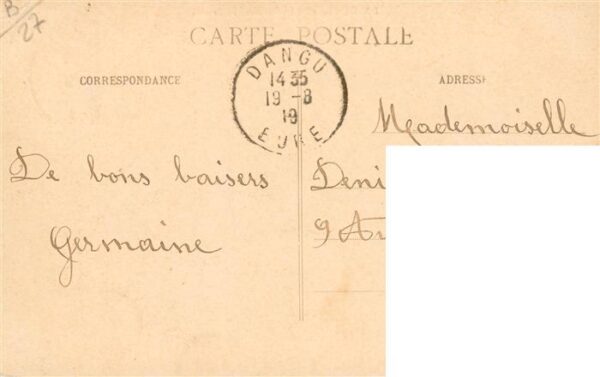 B
27
CARTE POSTALE
CORRESPONDANCE
ADRESSE
DANGU
14 35
19 -8
19
EURE
Mademoiselle
De bons baisers
Germaine
Deni
9 A